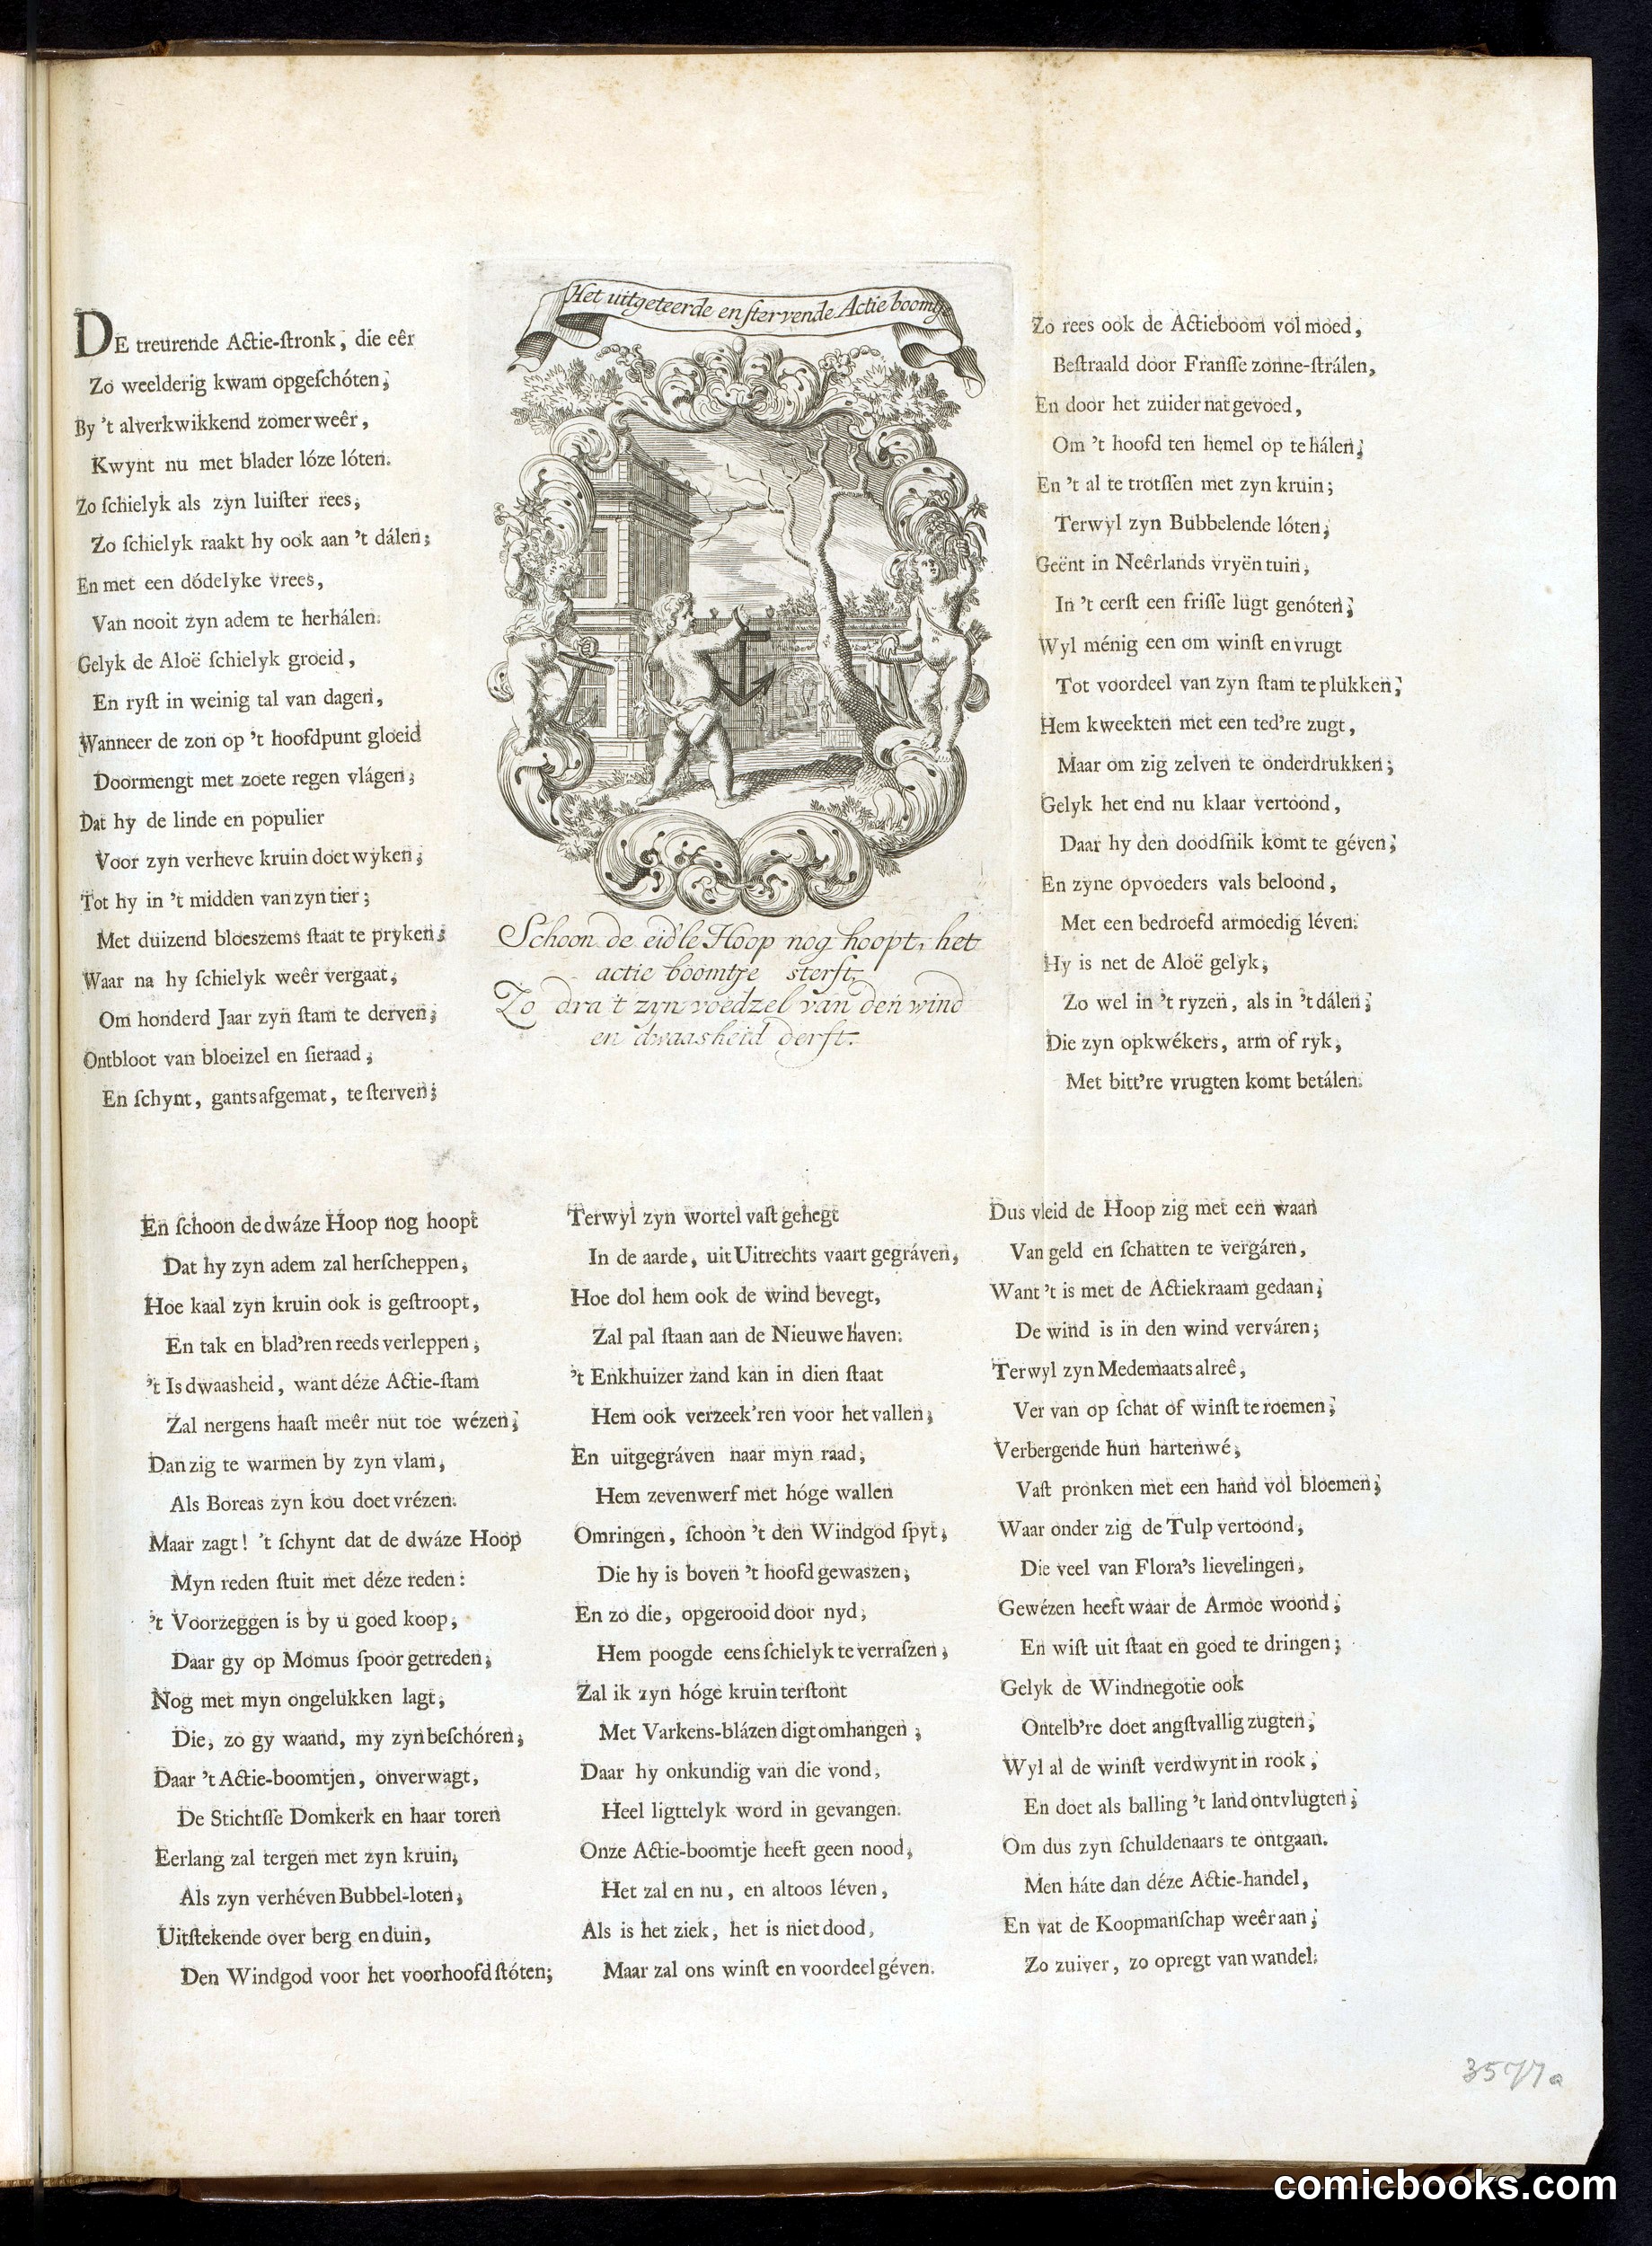 Het uitgeteerde en ſtervende Actie boomtje
DE treurende Actie-ſtronk, die eêr
Zo weelderig kwam opgeſchóten;
By 't alverkwikkend zomerweêr,
Kwynt nu met blader lóze lóten.
Zo ſchielyk als zyn luiſter rees,
Zo ſchielyk raakt hy ook aan 't dálen;
En met een dódelyke vrees,
Van nooit zyn adem te herhálen.
Gelyk de Aloë ſchielyk groeid,
En ryſt in weinig tal van dagen,
Wanneer de zon op 't hoofdpunt gloeid
Doormengt met zoete regen vlágen;
Dat hy de linde en populier
Voor zyn verheve kruin doet wyken;
Tot hy in 't midden van zyn tier;
Met duizend bloeszems ſtaat te pryken;
Waar na hy ſchielyk weêr vergaat,
Om honderd Jaar zyn ſtam te derven;
Ontbloot van bloeizel en ſieraad;
En ſchynt, gants afgemat, te ſterven;
Schoon de eid'le Hoop nog hoopt, het
actie boomtje sterft,
Zo dra 't zyn voedzel van den wind
en dwaasheid derft.
Zo rees ook de Actieboom vol moed,
Beſtraald door Franſſe zonne-ſtrálen,
En door het zuider nat gevoed,
Om 't hoofd ten hemel op te hálen;
En 't al te trotſſen met zyn kruin;
Terwyl zyn Bubbelende lóten;
Geënt in Neêrlands vryën tuin,
In 't eerſt een friſſe lugt genóten;
Wyl ménig een om winſt en vrugt
Tot voordeel van zyn ſtam te plukken;
Hem kweekten met een ted're zugt,
Maar om zig zelven te onderdrukken;
Gelyk het end nu klaar vertoond,
Daar hy den doodſnik komt te géven;
En zyne opvoeders vals beloond,
Met een bedroefd armoedig léven.
Hy is net de Aloë gelyk,
Zo wel in 't ryzen, als in 't dálen;
Die zyn opkwékers, arm of ryk,
Met bitt're vrugten komt betálen.
En ſchoon de dwáze Hoop nog hoopt
Dat hy zyn adem zal herſcheppen,
Hoe kaal zyn kruin ook is geſtroopt,
En tak en blad'ren reeds verleppen;
't Is dwaasheid, want déze Actie-ſtam
Zal nergens haaſt meêr nut toe wézen;
Dan zig te warmen by zyn vlam,
Als Boreas zyn kou doet vrézen.
Maar zagt! 't ſchynt dat de dwáze Hoop
Myn reden ſtuit met déze reden:
't Voorzeggen is by u goed koop,
Daar gy op Momus ſpoor getreden;
Nog met myn ongelukken lagt,
Die, zo gy waand, my zyn beſchóren;
Daar 't Actie-boomtjen, onverwagt,
De Stichtſſe Domkerk en haar toren
Eerlang zal tergen met zyn kruin,
Als zyn verhéven Bubbel-loten;
Uitſtekende over berg en duin,
Den Windgod voor het voorhoofd ſtóten;
Terwyl zyn wortel vaſt gehegt
In de aarde, uit Uitrechts vaart gegráven,
Hoe dol hem ook de wind bevegt,
Zal pal ſtaan aan de Nieuwe haven.
't Enkhuizer zand kan in dien ſtaat
Hem ook verzeek'ren voor het vallen;
En uitgegráven naar myn raad,
Hem zevenwerf met hóge wallen
Omringen, ſchoon 't den Windgod ſpyt;
Die hy is boven 't hoofd gewaszen;
En zo die, opgerooid door nyd;
Hem poogde eens ſchielyk te verraſzen;
Zal ik zyn hóge kruin terſtont
Met Varkens-blázen digt omhangen;
Daar hy onkundig van die vond,
Heel ligttelyk word in gevangen.
Onze Actie-boomtje heeft geen nood,
Het zal en nu, en altoos léven,
Als is het ziek, het is niet dood,
Maar zal ons winſt en voordeel géven.
Dus vleid de Hoop zig met een waan
Van geld en ſchatten te vergáren,
Want 't is met de Actiekraam gedaan;
De wind is in den wind verváren;
Terwyl zyn Medemaats alreê,
Ver van op ſchat of winſt te roemen;
Verbergende hun hartenwé;
Vaſt pronken met een hand vol bloemen;
Waar onder zig de Tulp vertoond,
Die veel van Flora's lievelingen,
Gewézen heeft waar de Armoe woond;
En wiſt uit ſtaat en goed te dringen;
Gelyk de Windnegotie ook
Ontelb're doet angſtvallig zugten;
Wyl al de winſt verdwynt in rook;
En doet als balling 't land ontvlugten;
Om dus zyn ſchuldenaars te ontgaan.
Men háte dan déze Actie-handel,
En vat de Koopmanſchap weêr aan;
Zo zuiver, zo opregt van wandel.
3577a
comicbooks.com